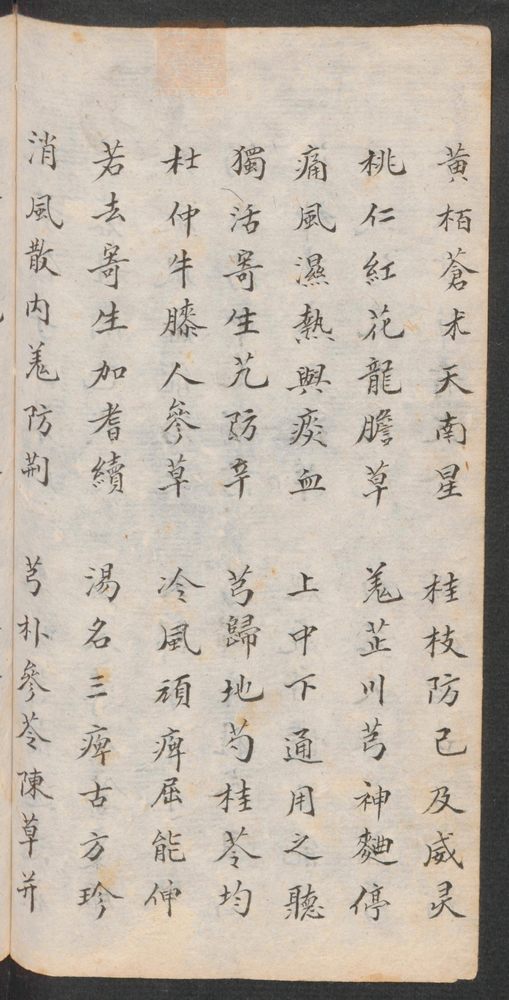 黄栢蒼朮天南星　桂枝防己及威灵
桃仁紅花龍膽草　羗芷川芎神麯停
痛風濕熱與痰血　上中下通用之聽
獨活寄生艽防辛　芎歸地芍桂苓均
杜仲牛膝人參草　冷風頑痺屈能伸
若去寄生加耆續　湯名三痺古方珍
消風散內羗防荆　芎朴參苓陳草并